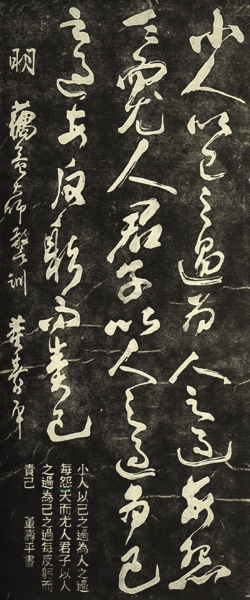 小人以己之過為人之過每怨
天而尤人君子以人之過為己
之過每反躬而責己
明 蕅益大師警訓 董壽平
小人以己之過為人之過
每怨天而尤人君子以人
之過為己之過每反躬而
責己 董壽平書